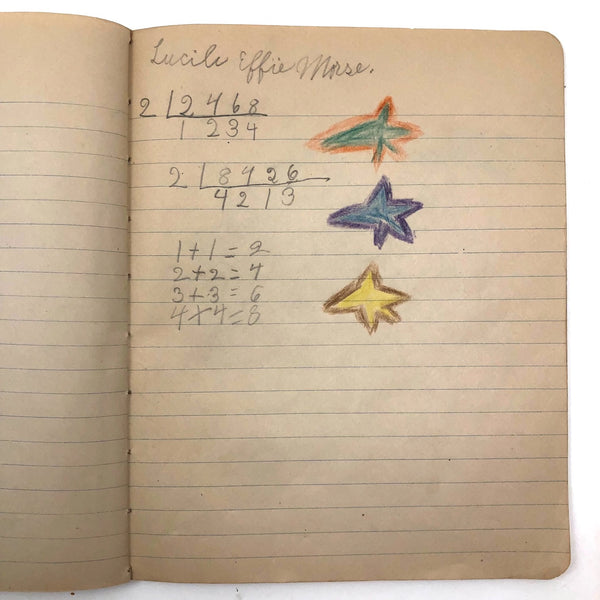 Lucile Effie Morse.
2 | 2 4 6 8
1 2 3 4
2 | 8 4 2 6
4 2 1 3
1 + 1 = 2
2 + 2 = 4
3 + 3 = 6
4 + 4 = 8